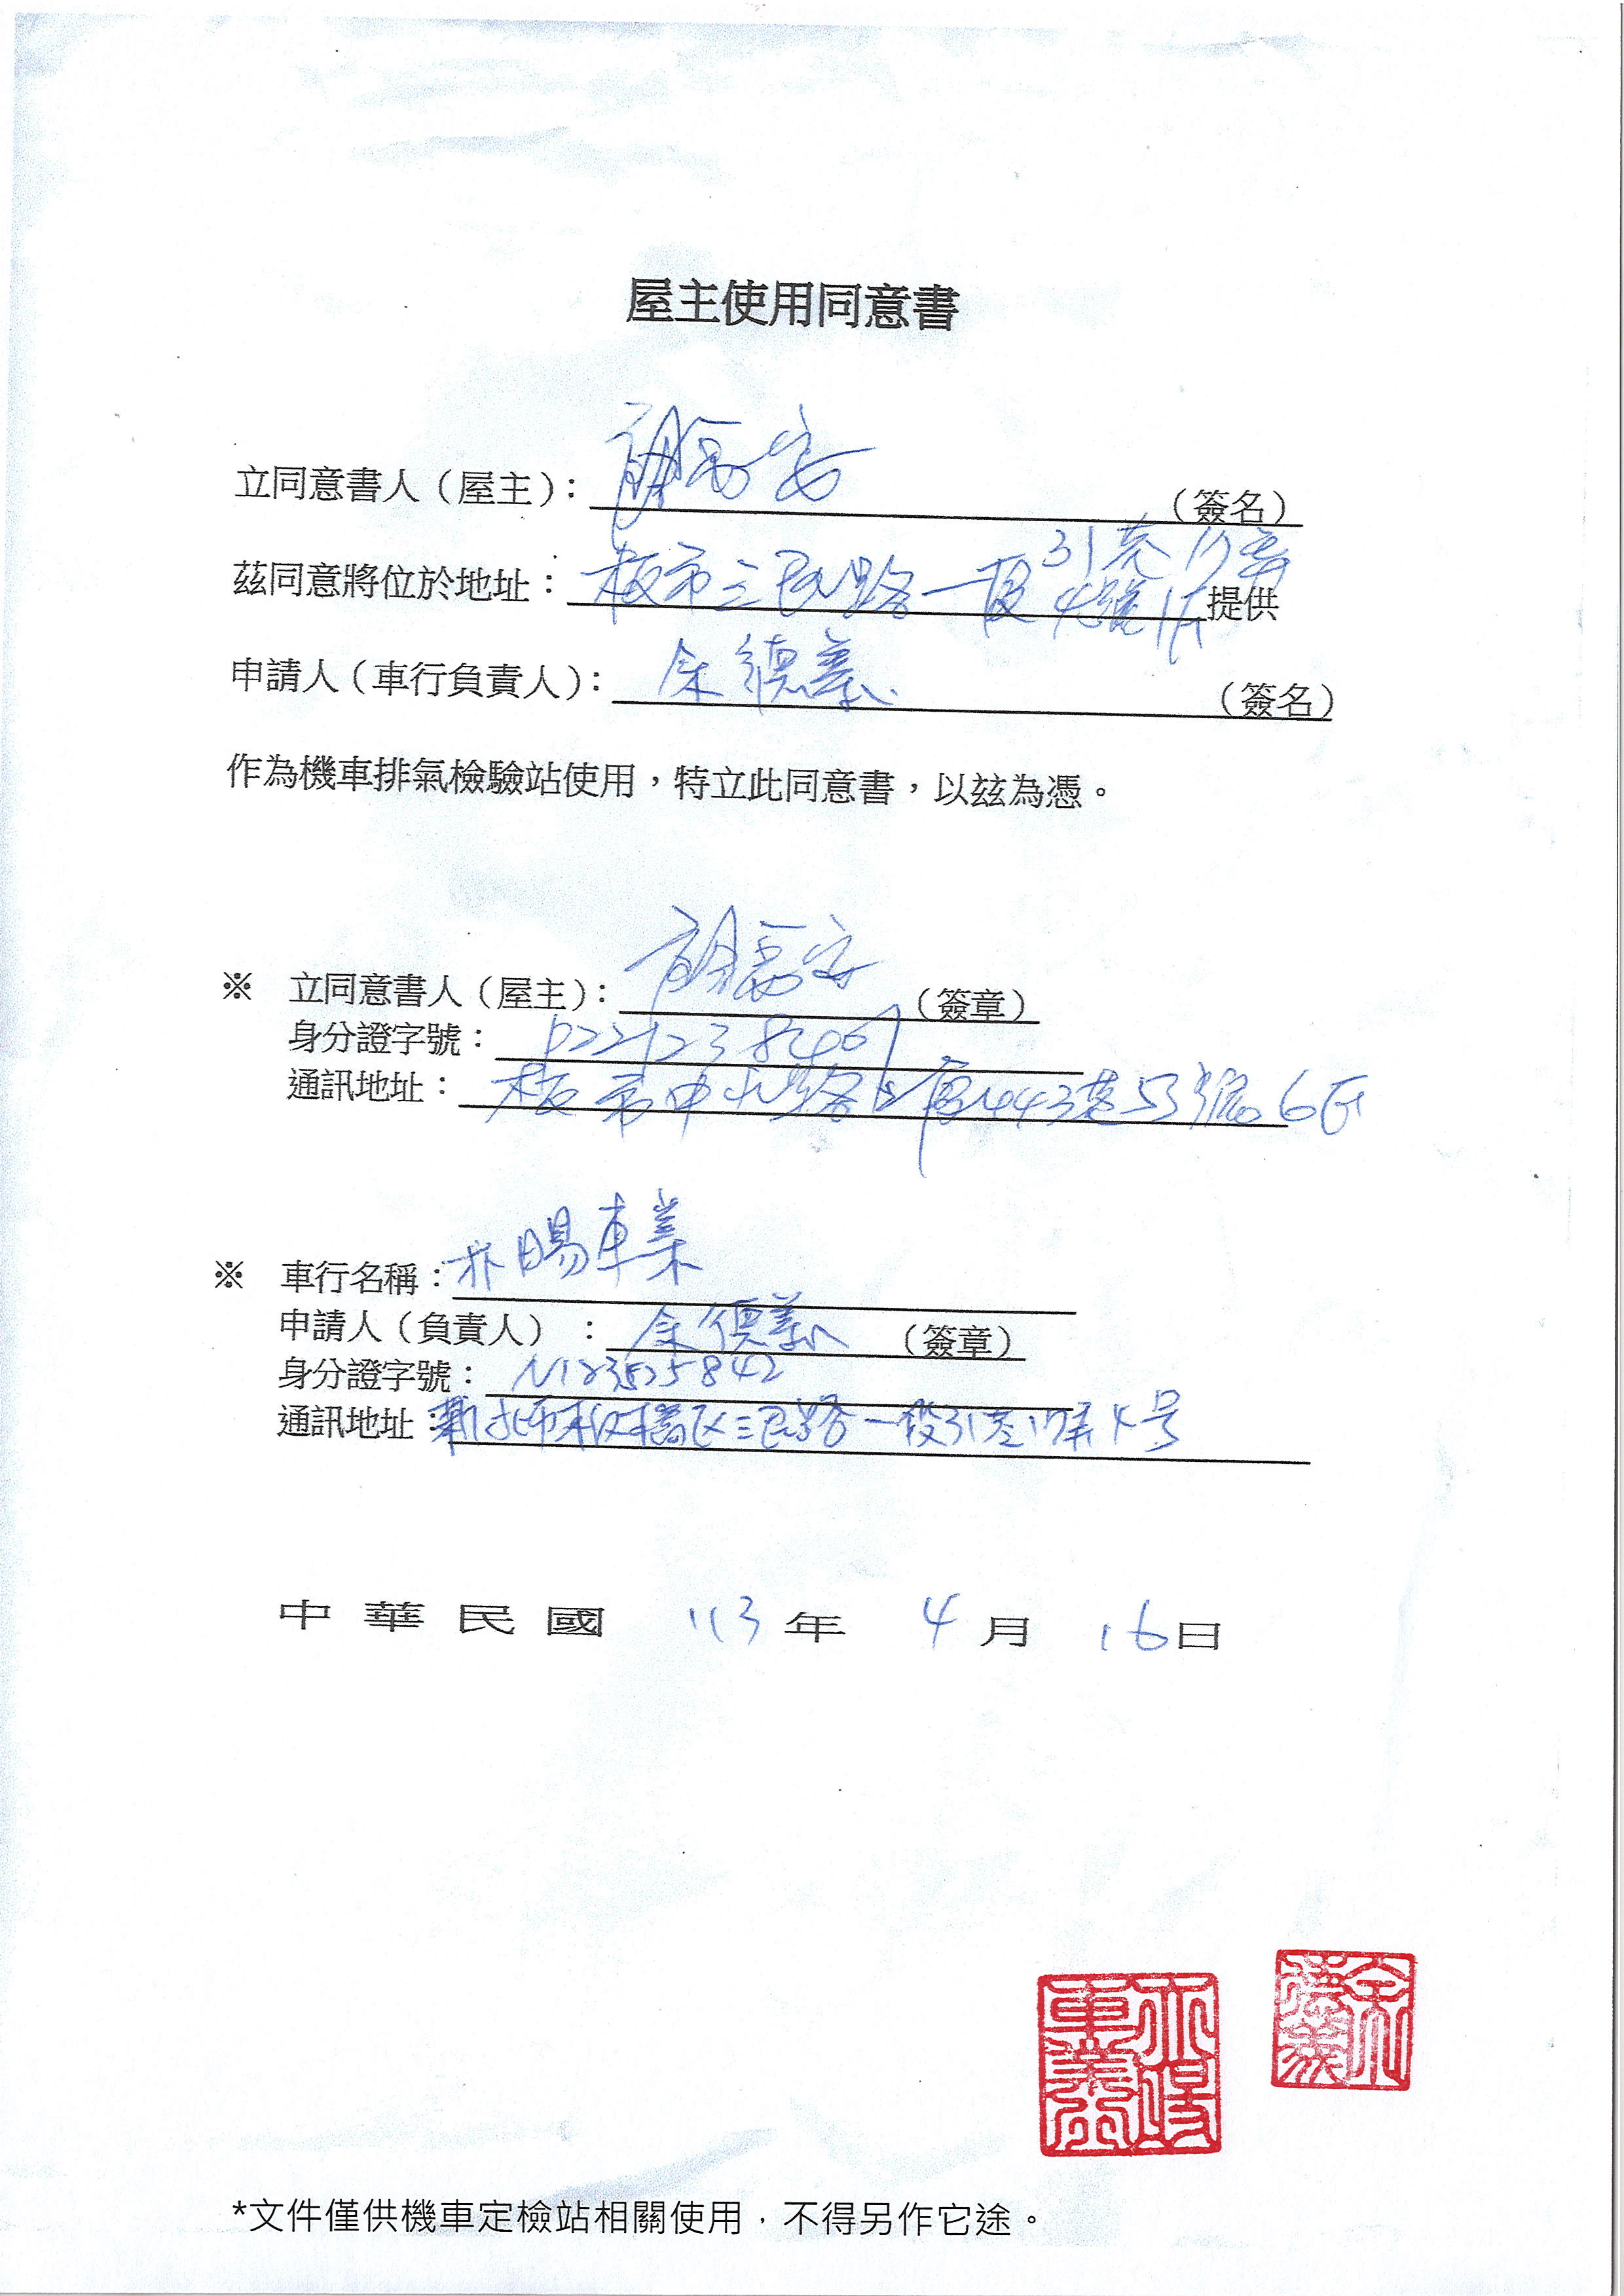 屋主使用同意書
立同意書人（屋主）： （簽名）
茲同意將位於地址： 板市三民路一段31巷17弄4號1F 提供
申請人（車行負責人）： 余德義 （簽名）
作為機車排氣檢驗站使用，特立此同意書，以茲為憑。
※ 立同意書人（屋主）： （簽章）
身分證字號：
通訊地址： 板市中山路 段443巷53號6F
※ 車行名稱： 車業
申請人（負責人）： 余德義 （簽章）
身分證字號： N123525842
通訊地址： 新北市板橋区三民路一段31巷17弄4号
中華民國 113年 4月 16日
車業
余德義
*文件僅供機車定檢站相關使用，不得另作它途。